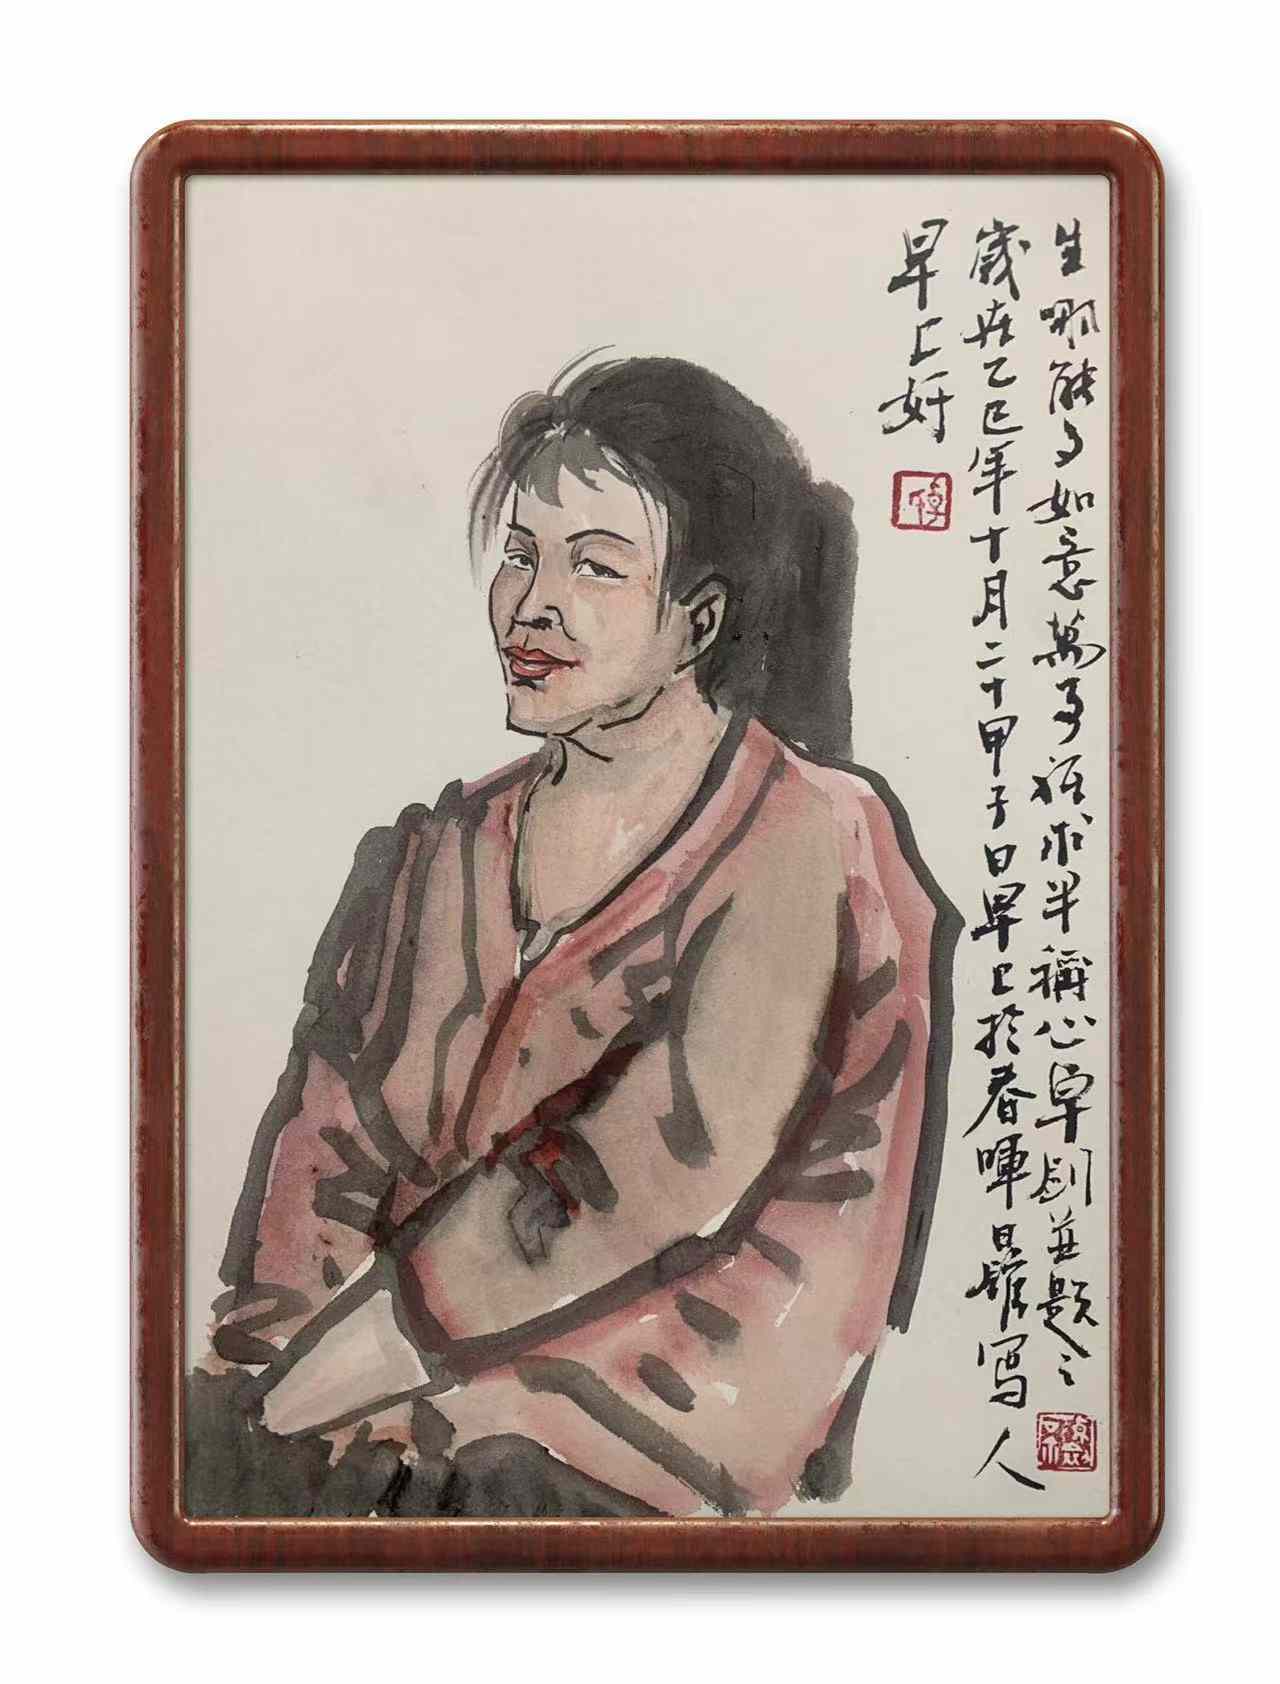 早上好
歲在乙巳年十月二十甲子日早上於春暉館寫人
生哪能多如意萬事祇求半稱心卓並題之